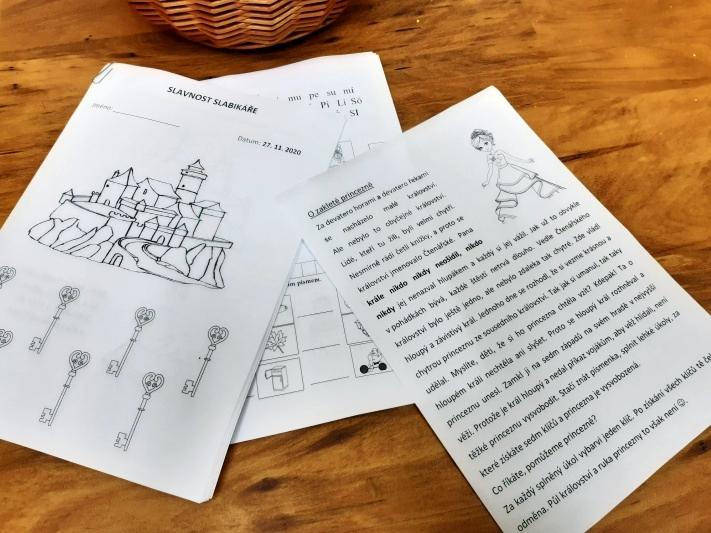 SLAVNOST SLABIKÁŘE
Jméno:
Datum: 27. 11. 2020
mu pe su mi
Pi Li Só
SI
ím písmem.
O zakleté princezně
Za devatero horami a devatero řekami
se nacházelo malé království.
Ale nebylo to obyčejné království.
Lidé, kteří tu žili, byli velmi chytří.
Nesmírně rádi četli knížky, a proto se
království jmenovalo Čtenářské. Pana
krále nikdo nikdy neošidil, nikdo
nikdy jej nenazval hlupákem a každý si jej vážil. Jak už to obvykle
v pohádkách bývá, každé štěstí netrvá dlouho. Vedle Čtenářského
království bylo ještě jedno, ale nebylo zdaleka tak chytré. Zde vládl
hloupý a závistivý král. Jednoho dne se rozhodl, že si vezme krásnou a
chytrou princeznu ze sousedního království. Tak jak si umanul, tak taky
udělal. Myslíte, děti, že si ho princezna chtěla vzít? Kdepak! Ta o
hloupém králi nechtěla ani slyšet. Proto se hloupý král rozhněval a
princeznu unesl. Zamkl ji na sedm západů na svém hradě v nejvyšší
věži. Protože je král hloupý a nedal příkaz vojákům, aby věž hlídali, není
těžké princeznu vysvobodit. Stačí znát písmenka, splnit lehké úkoly, za
které získáte sedm klíčů a princezna je vysvobozena.
Co říkáte, pomůžeme princezně?
Za každý splněný úkol vybarvi jeden klíč. Po získání všech klíčů tě če
odměna. Půl království a ruka princezny to však není ☺.